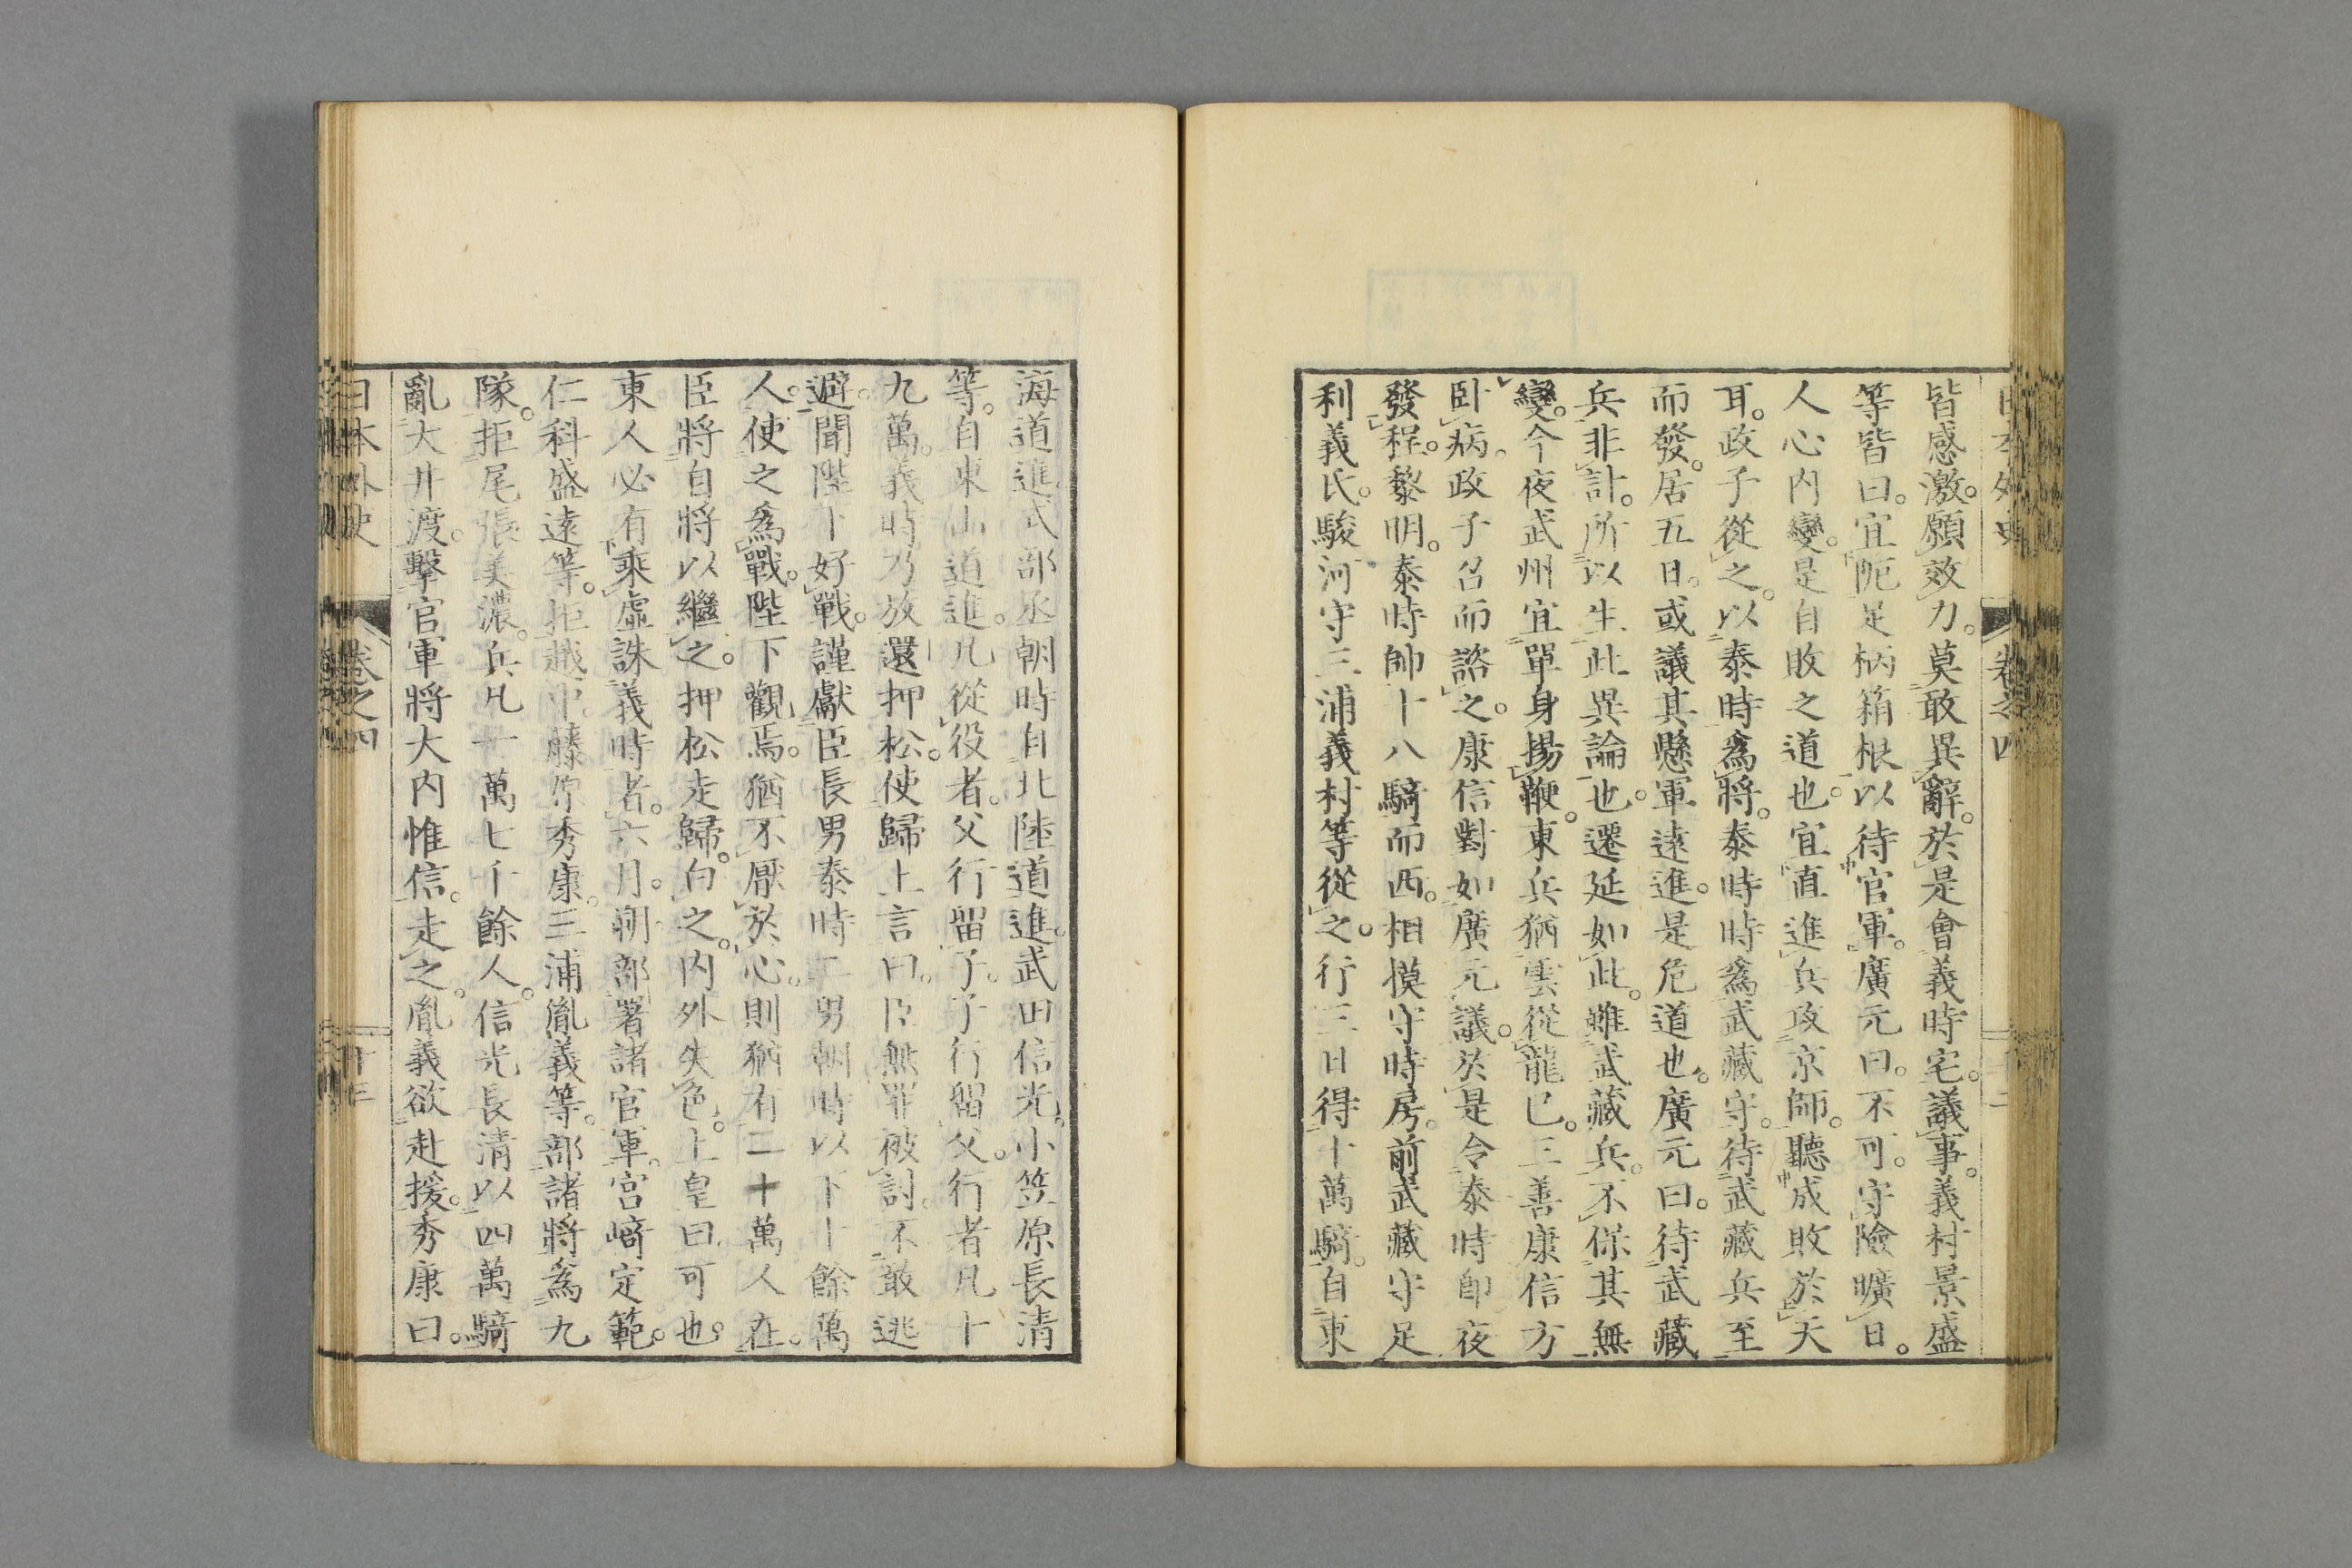 日本外史 卷之四
皆感激。願效力。莫敢異辭。於是會義時宅。議事。義村景盛
等皆曰。宜阨足柄箱根以待官軍。廣元曰。不可。守險曠日。
人心内變。是自敗之道也。宜直進兵攻京師。聽成敗於天
耳。政子從之。以泰時爲將。泰時時爲武藏守。待武藏兵至
而發。居五日。或議其懸軍遠進。是危道也。廣元曰。待武藏
兵非計。所以生此異論也。遷延如此。雖武藏兵。不保其無
變。今夜武州宜單身揚鞭。東兵猶雲從龍已。三善康信方
臥病。政子召而諮之。康信對如廣元議。於是令泰時卽夜
發程。黎明。泰時帥十八騎而西。相摸守時房。前武藏守足
利義氏。駿河守三浦義村等從之。行三日得十萬騎。自東
海道進。式部丞朝時自北陸道進。武田信光。小笠原長清
等。自東山道進。凡從役者。父行留子。子行留父。行者凡十
九萬。義時乃放還押松。使歸上言曰。臣無罪被討。不敢逃
避。聞陛下好戰。謹獻臣長男泰時二男朝時以下十餘萬
人。使之爲戰。陛下觀焉。猶不厭於心。則猶有二十萬人在。
臣將自將以繼之。押松走歸。白之。内外失色。上皇曰可也。
東人必有乘虛誅義時者。六月。朝部署諸官軍。宮﨑定範。
仁科盛遠等。拒越中。藤原秀康。三浦胤義等。部諸將爲九
隊。拒尾張美濃。兵凡一萬七千餘人。信光長清以四萬騎
亂大井渡。擊官軍將大内惟信。走之。胤義欲赴援。秀康曰。
日本外史 卷之四 十三